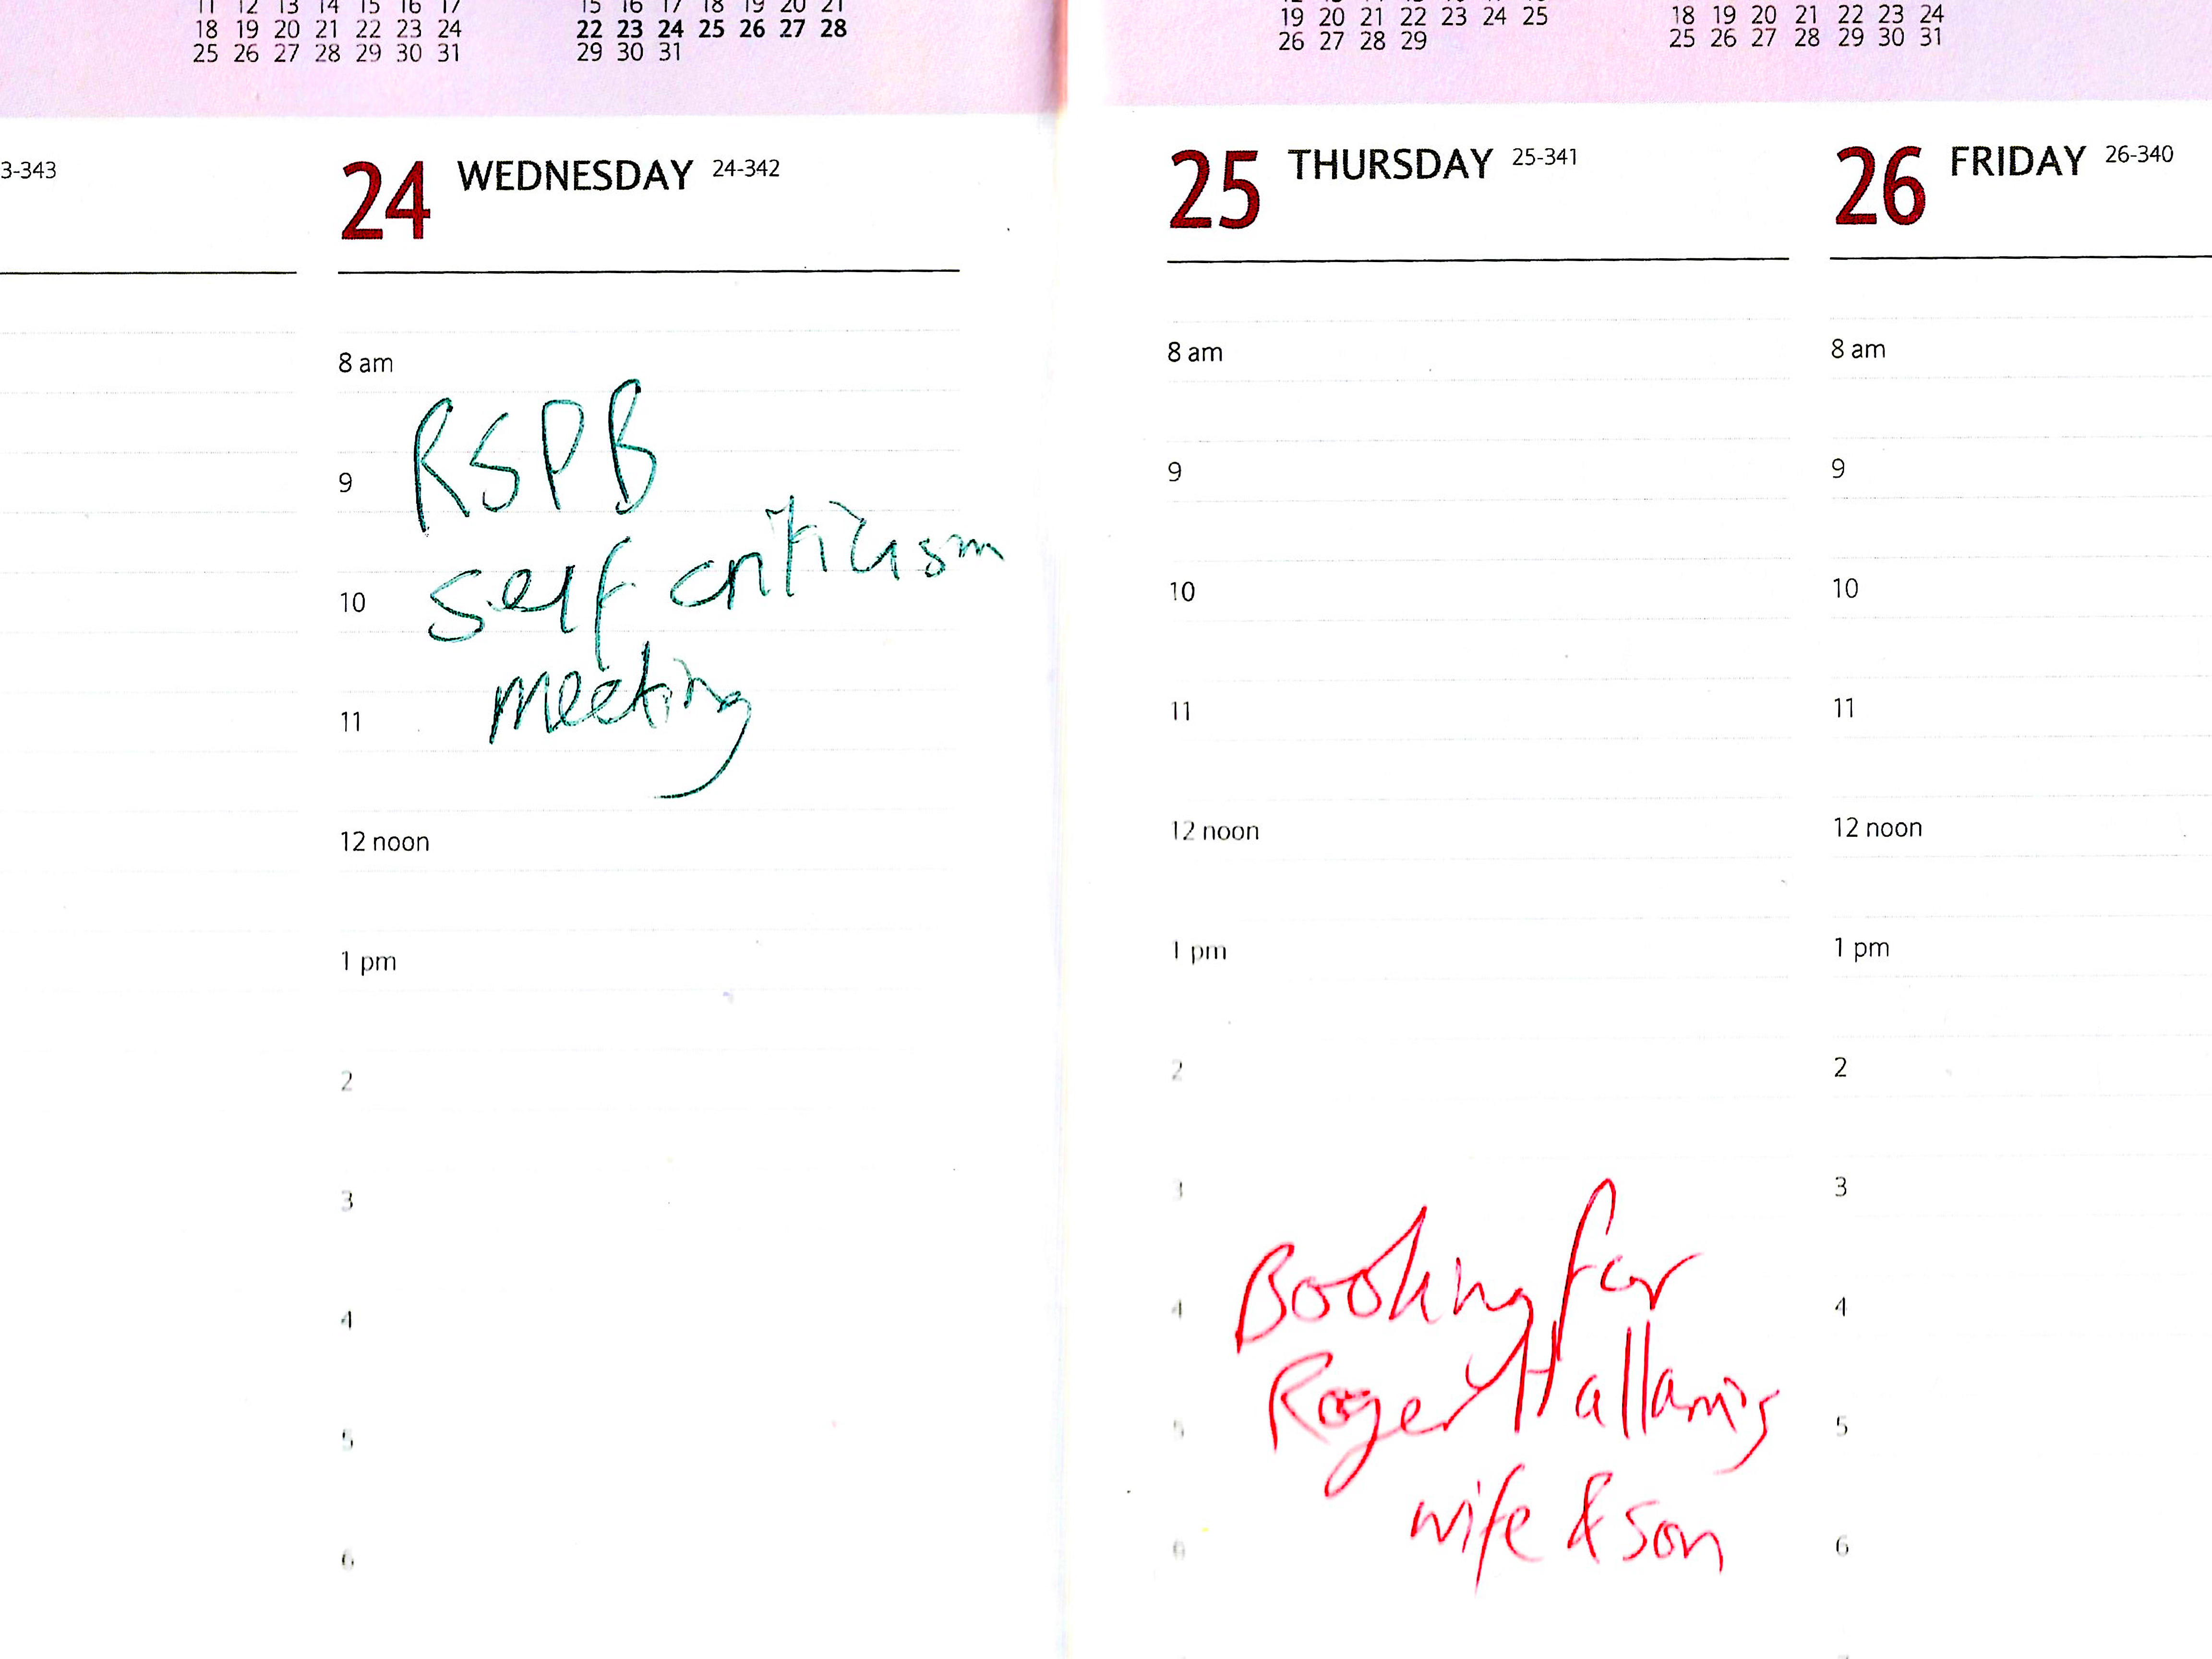 11 12 13 14 15 16 17
18 19 20 21 22 23 24
25 26 27 28 29 30 31
15 16 17 18 19 20 21
22 23 24 25 26 27 28
29 30 31
19 20 21 22 23 24 25
26 27 28 29
18 19 20 21 22 23 24
25 26 27 28 29 30 31
3-343
24 WEDNESDAY 24-342
8 am
RSPB
9
self criticism
10
meeting
11
12 noon
1 pm
2
3
4
5
6
25 THURSDAY 25-341
8 am
9
10
11
12 noon
1 pm
2
3
Booking for
4
Roger Hallam's
5
wife & son
6
26 FRIDAY 26-340
8 am
9
10
11
12 noon
1 pm
2
3
4
5
6